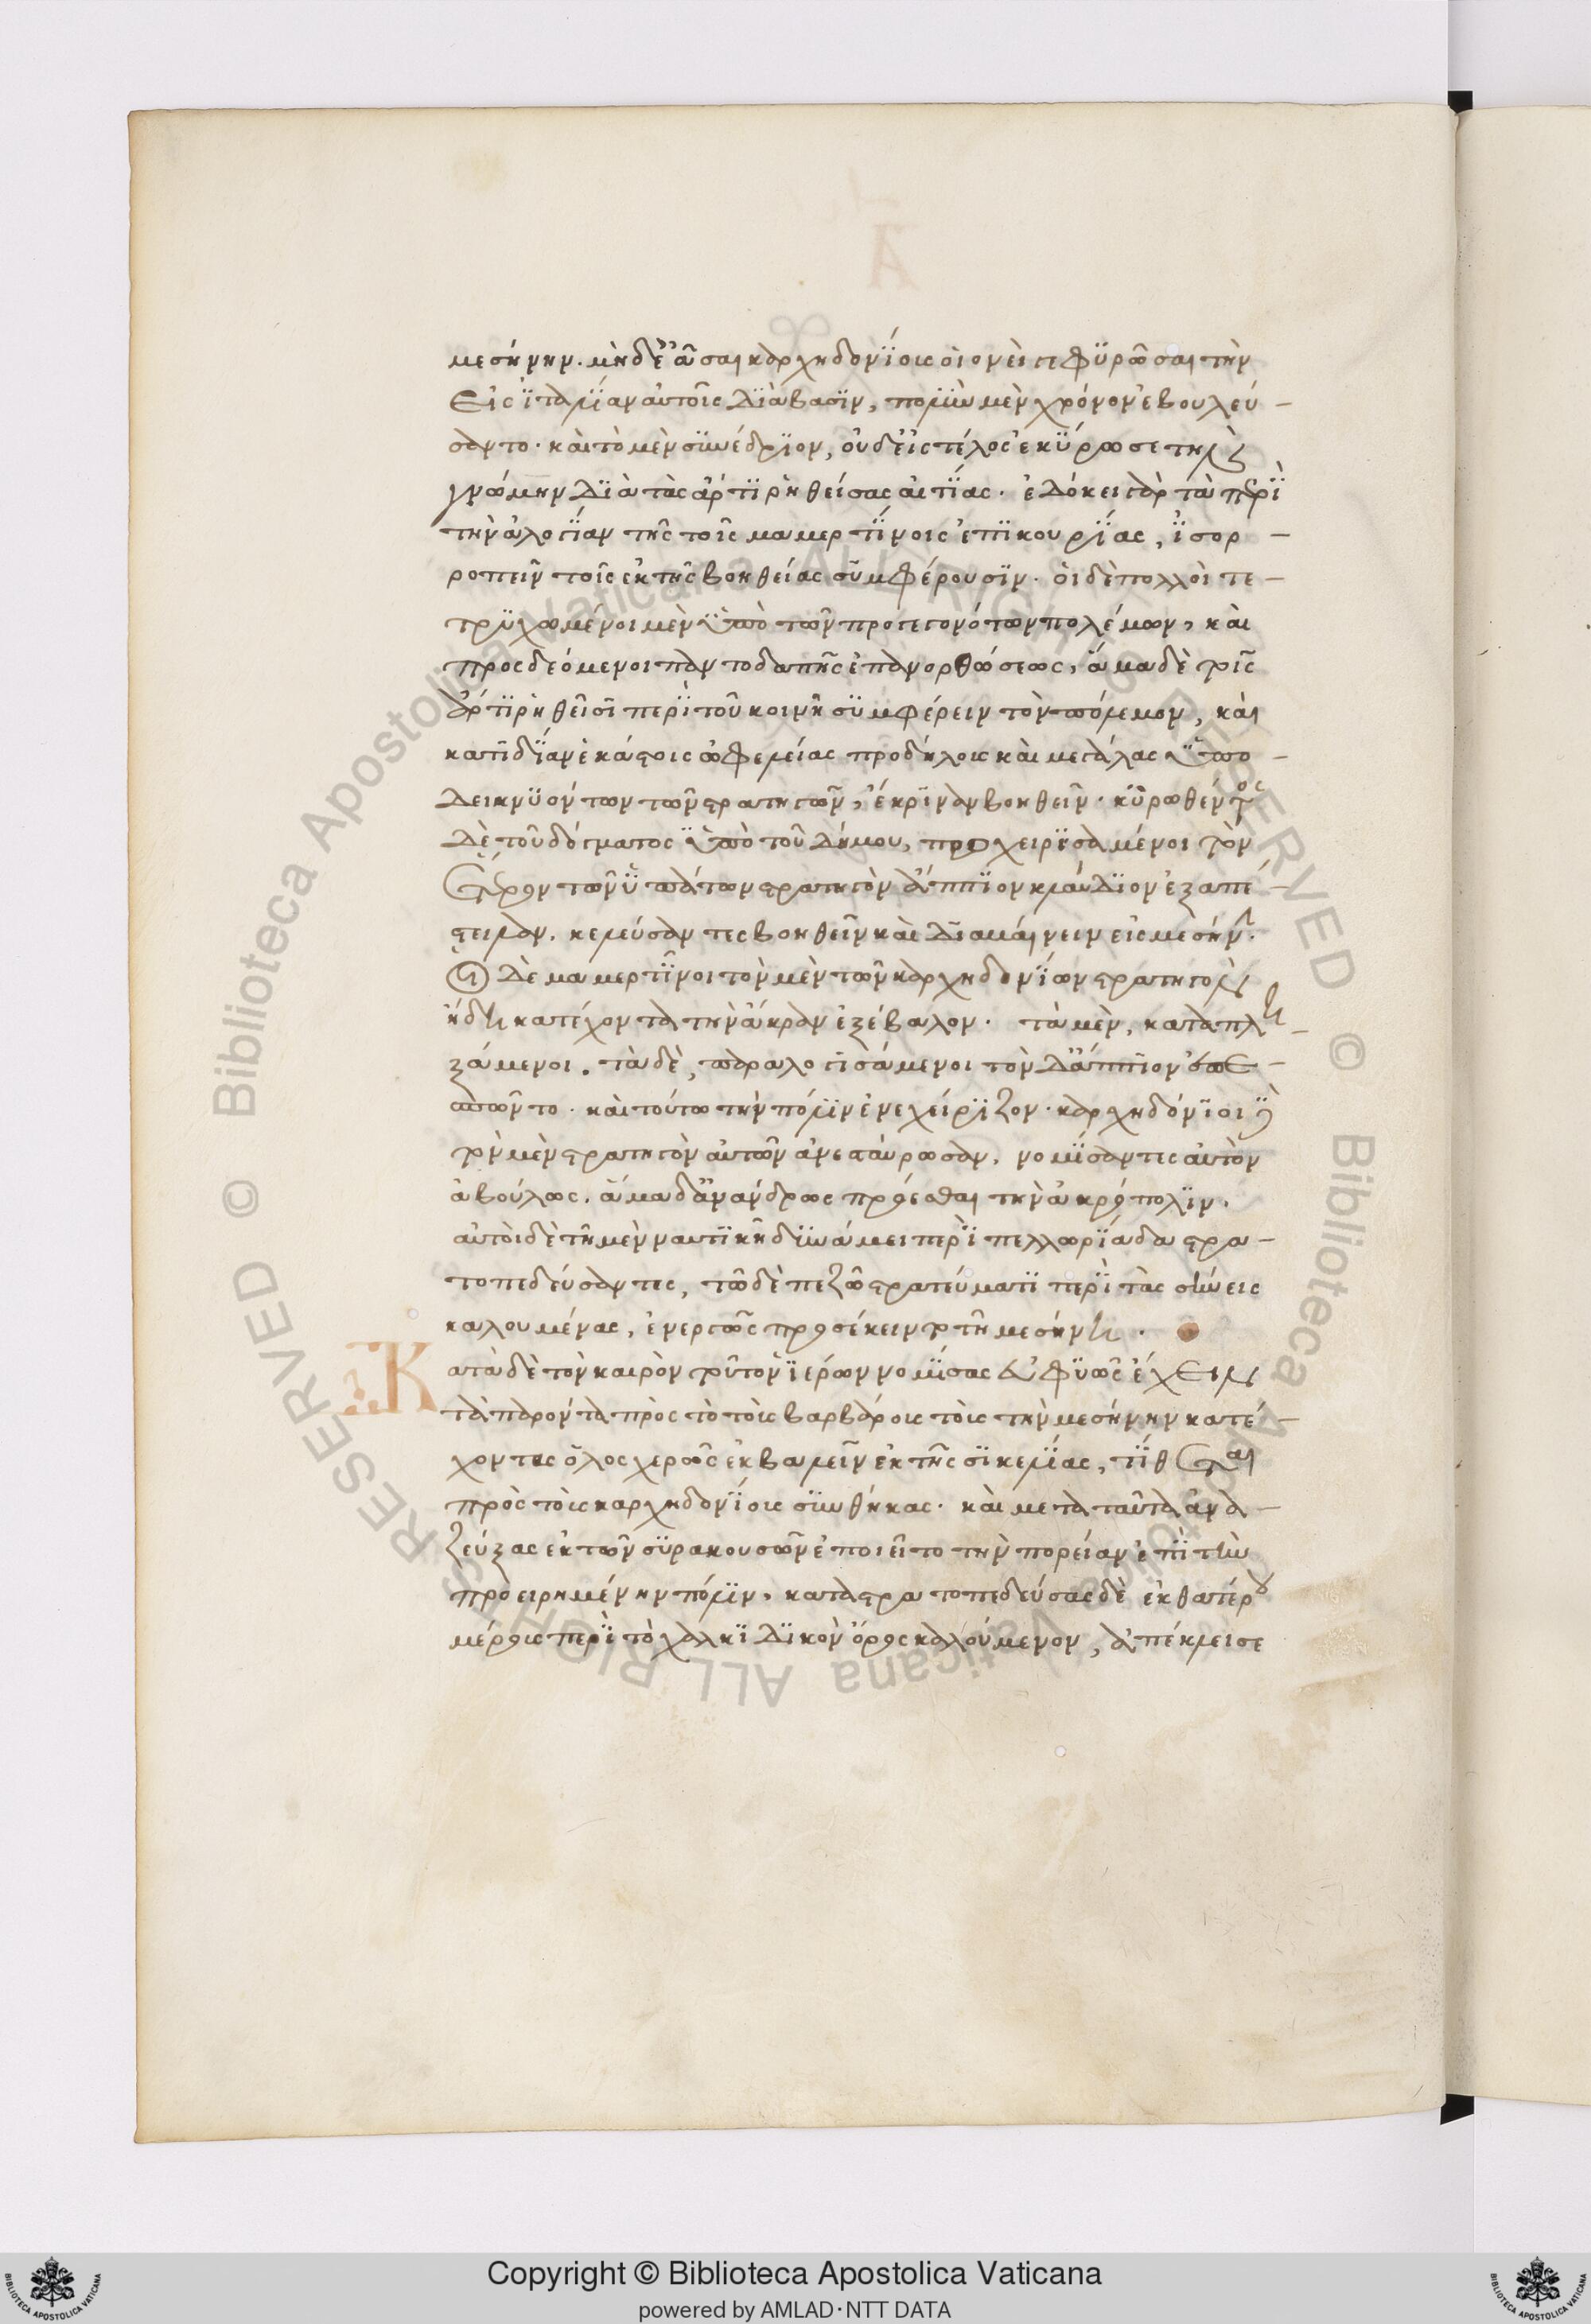 μεσήνην. μὴ δὲ ἐᾶσαι καρχηδονίοις οἱονεὶ γεφυρῶσαι τὴν
εἰς ἰταλίαν αὐτοῖς διάβασιν, πολὺν μὲν χρόνον ἐβουλεύ-
σαντο. καὶ τὸ μὲν συνέδριον, οὐδ εἰς τέλος ἐκύρωσε τὴν
γνώμην διὰ τὰς ἄρτι ῥηθείσας αἰτίας. ἐδόκει γὰρ τὰ περὶ
τὴν ἀλογίαν τῆς τοῖς μαμερτίνοις ἐπικουρίας, ἰσορ-
ροπεῖν τοῖς ἐκ τῆς βοηθείας συμφέρουσιν. οἱ δὲ πολλοὶ τε-
τρυχωμένοι μὲν ὑπὸ τῶν προγεγονότων πολέμων, καὶ
προσδεόμενοι παντοδαπῆς ἐπανορθώσεως, ἅμα δὲ τοῖς
ἄρτι ῥηθεῖσι περὶ τοῦ κοινῆ συμφέρειν τὸν πόλεμον, καὶ
κατ ἰδίαν ἑκάστοις ὠφελείας προδήλους καὶ μεγάλας ὑπο-
δεικνυόντων τῶν στρατηγῶν, ἔκριναν βοηθεῖν. κυρωθέντος
δὲ τοῦ δόγματος ὑπὸ τοῦ δήμου, προχειρισάμενοι τὸν
ἕτερον τῶν ὑπάτων στρατηγὸν ἄππιον κλαύδιον ἐξαπέ-
στειλαν. κελεύσαντες βοηθεῖν καὶ διαβαίνειν εἰς μεσήνην.
Οἱ δὲ μαμερτῖνοι τὸν μὲν τῶν καρχηδονίων στρατηγὸν
ἤδη κατέχοντα τὴν ἄκραν ἐξέβαλον. τὰ μὲν, καταπλη-
ξάμενοι. τὰ δὲ, παραλογισάμενοι τὸν δ ἄππιον ἐπε-
σπῶντο. καὶ τούτω τὴν πόλιν ἐνεχείριζον. καρχηδόνιοι δὲ
τὸν μὲν στρατηγὸν αὐτῶν ἀνεσταύρωσαν, νομίσαντες αὐτὸν
ἀβούλως. ἅμα δ ἀνάνδρως προέσθαι τὴν ἀκρόπολιν.
αὐτοὶ δὲ τῆ μὲν ναυτικῆ δυνάμει περὶ πελλωριάδα στρα-
τοπεδεύσαντες, τῶ δὲ πεζῶ στρατεύματι περὶ τὰς σύνεις
καλουμένας, ἐνεργῶς προσέκειντο τῆ μεσήνη.
Κατὰ δὲ τὸν καιρὸν τοῦτον ἱέρων νομίσας εὐφυῶς ἔχειν
τὰ παρόντα πρὸς τὸ τοὺς βαρβάρους τοὺς τὴν μεσήνην κατέ-
χοντας ὁλοσχερῶς ἐκβαλεῖν ἐκ τῆς σικελίας, τίθεται
πρὸς τοὺς καρχηδονίους συνθήκας. καὶ μετὰ ταῦτα ἀνα-
ζεύξας ἐκ τῶν συρακουσῶν ἐποιεῖτο τὴν πορείαν ἐπὶ τὴν
προειρημένην πόλιν. καταστρατοπεδεύσας δὲ ἐκ θατέρου
μέρους περὶ τὸ χαλκιδικὸν ὄρος καλούμενον, ἀπέκλεισε
Copyright © Biblioteca Apostolica Vaticana
powered by AMLAD·NTT DATA